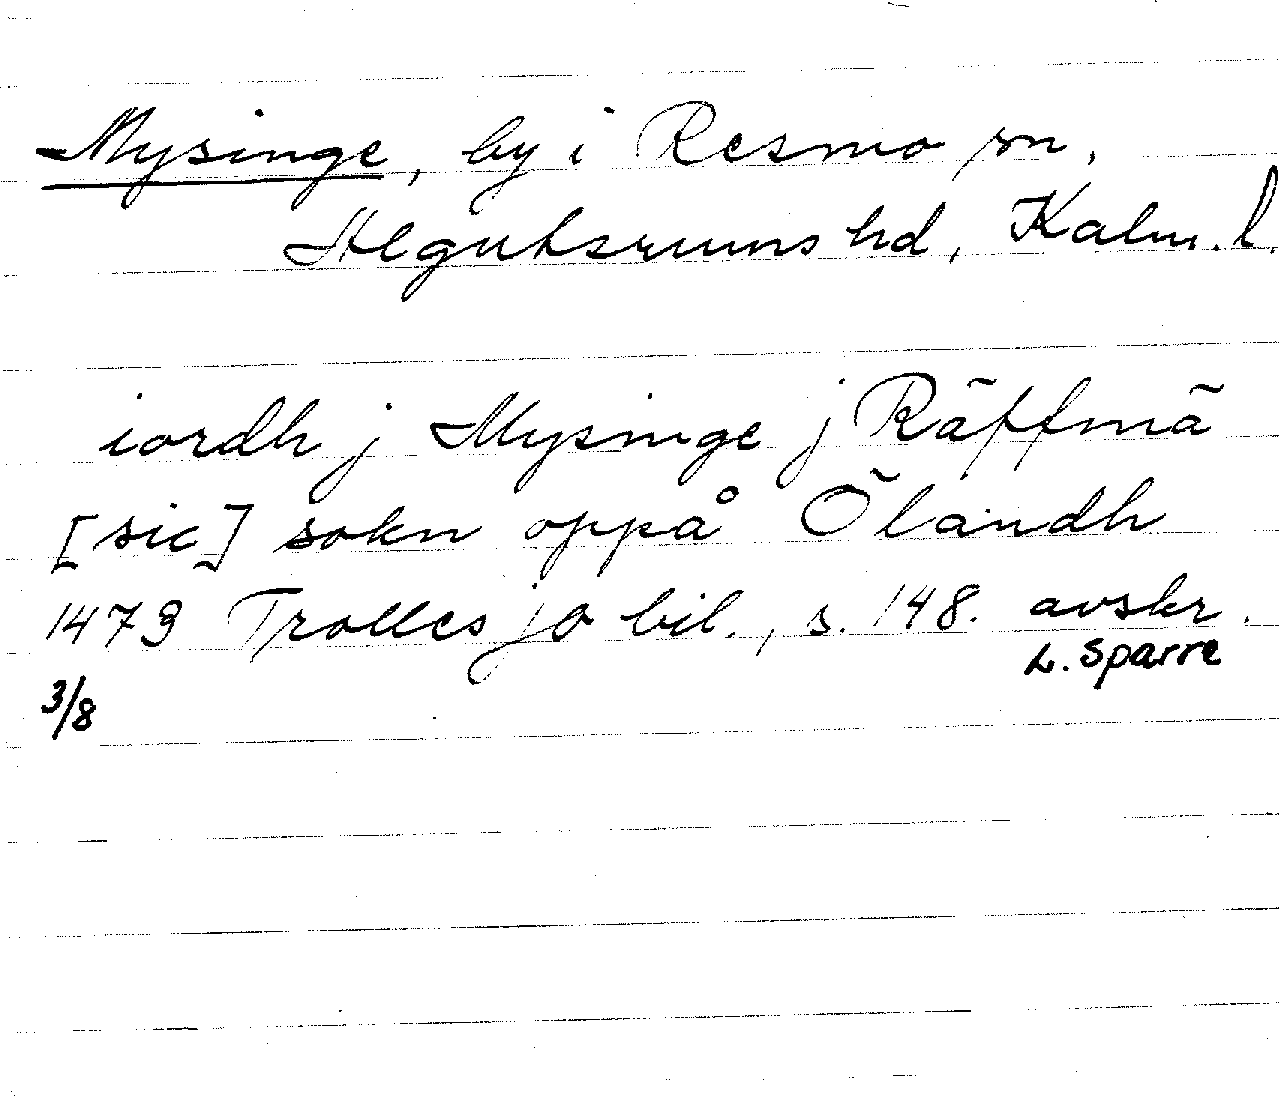 Mysinge, by i Resmo sn,
Algutsrums hd, Kalm. l.
iordh j Mysinge j Räffmä
[sic] sokn oppå Ölandh
1473 Trolles jo bil., s. 148. avskr.
L. Sparre
3/8